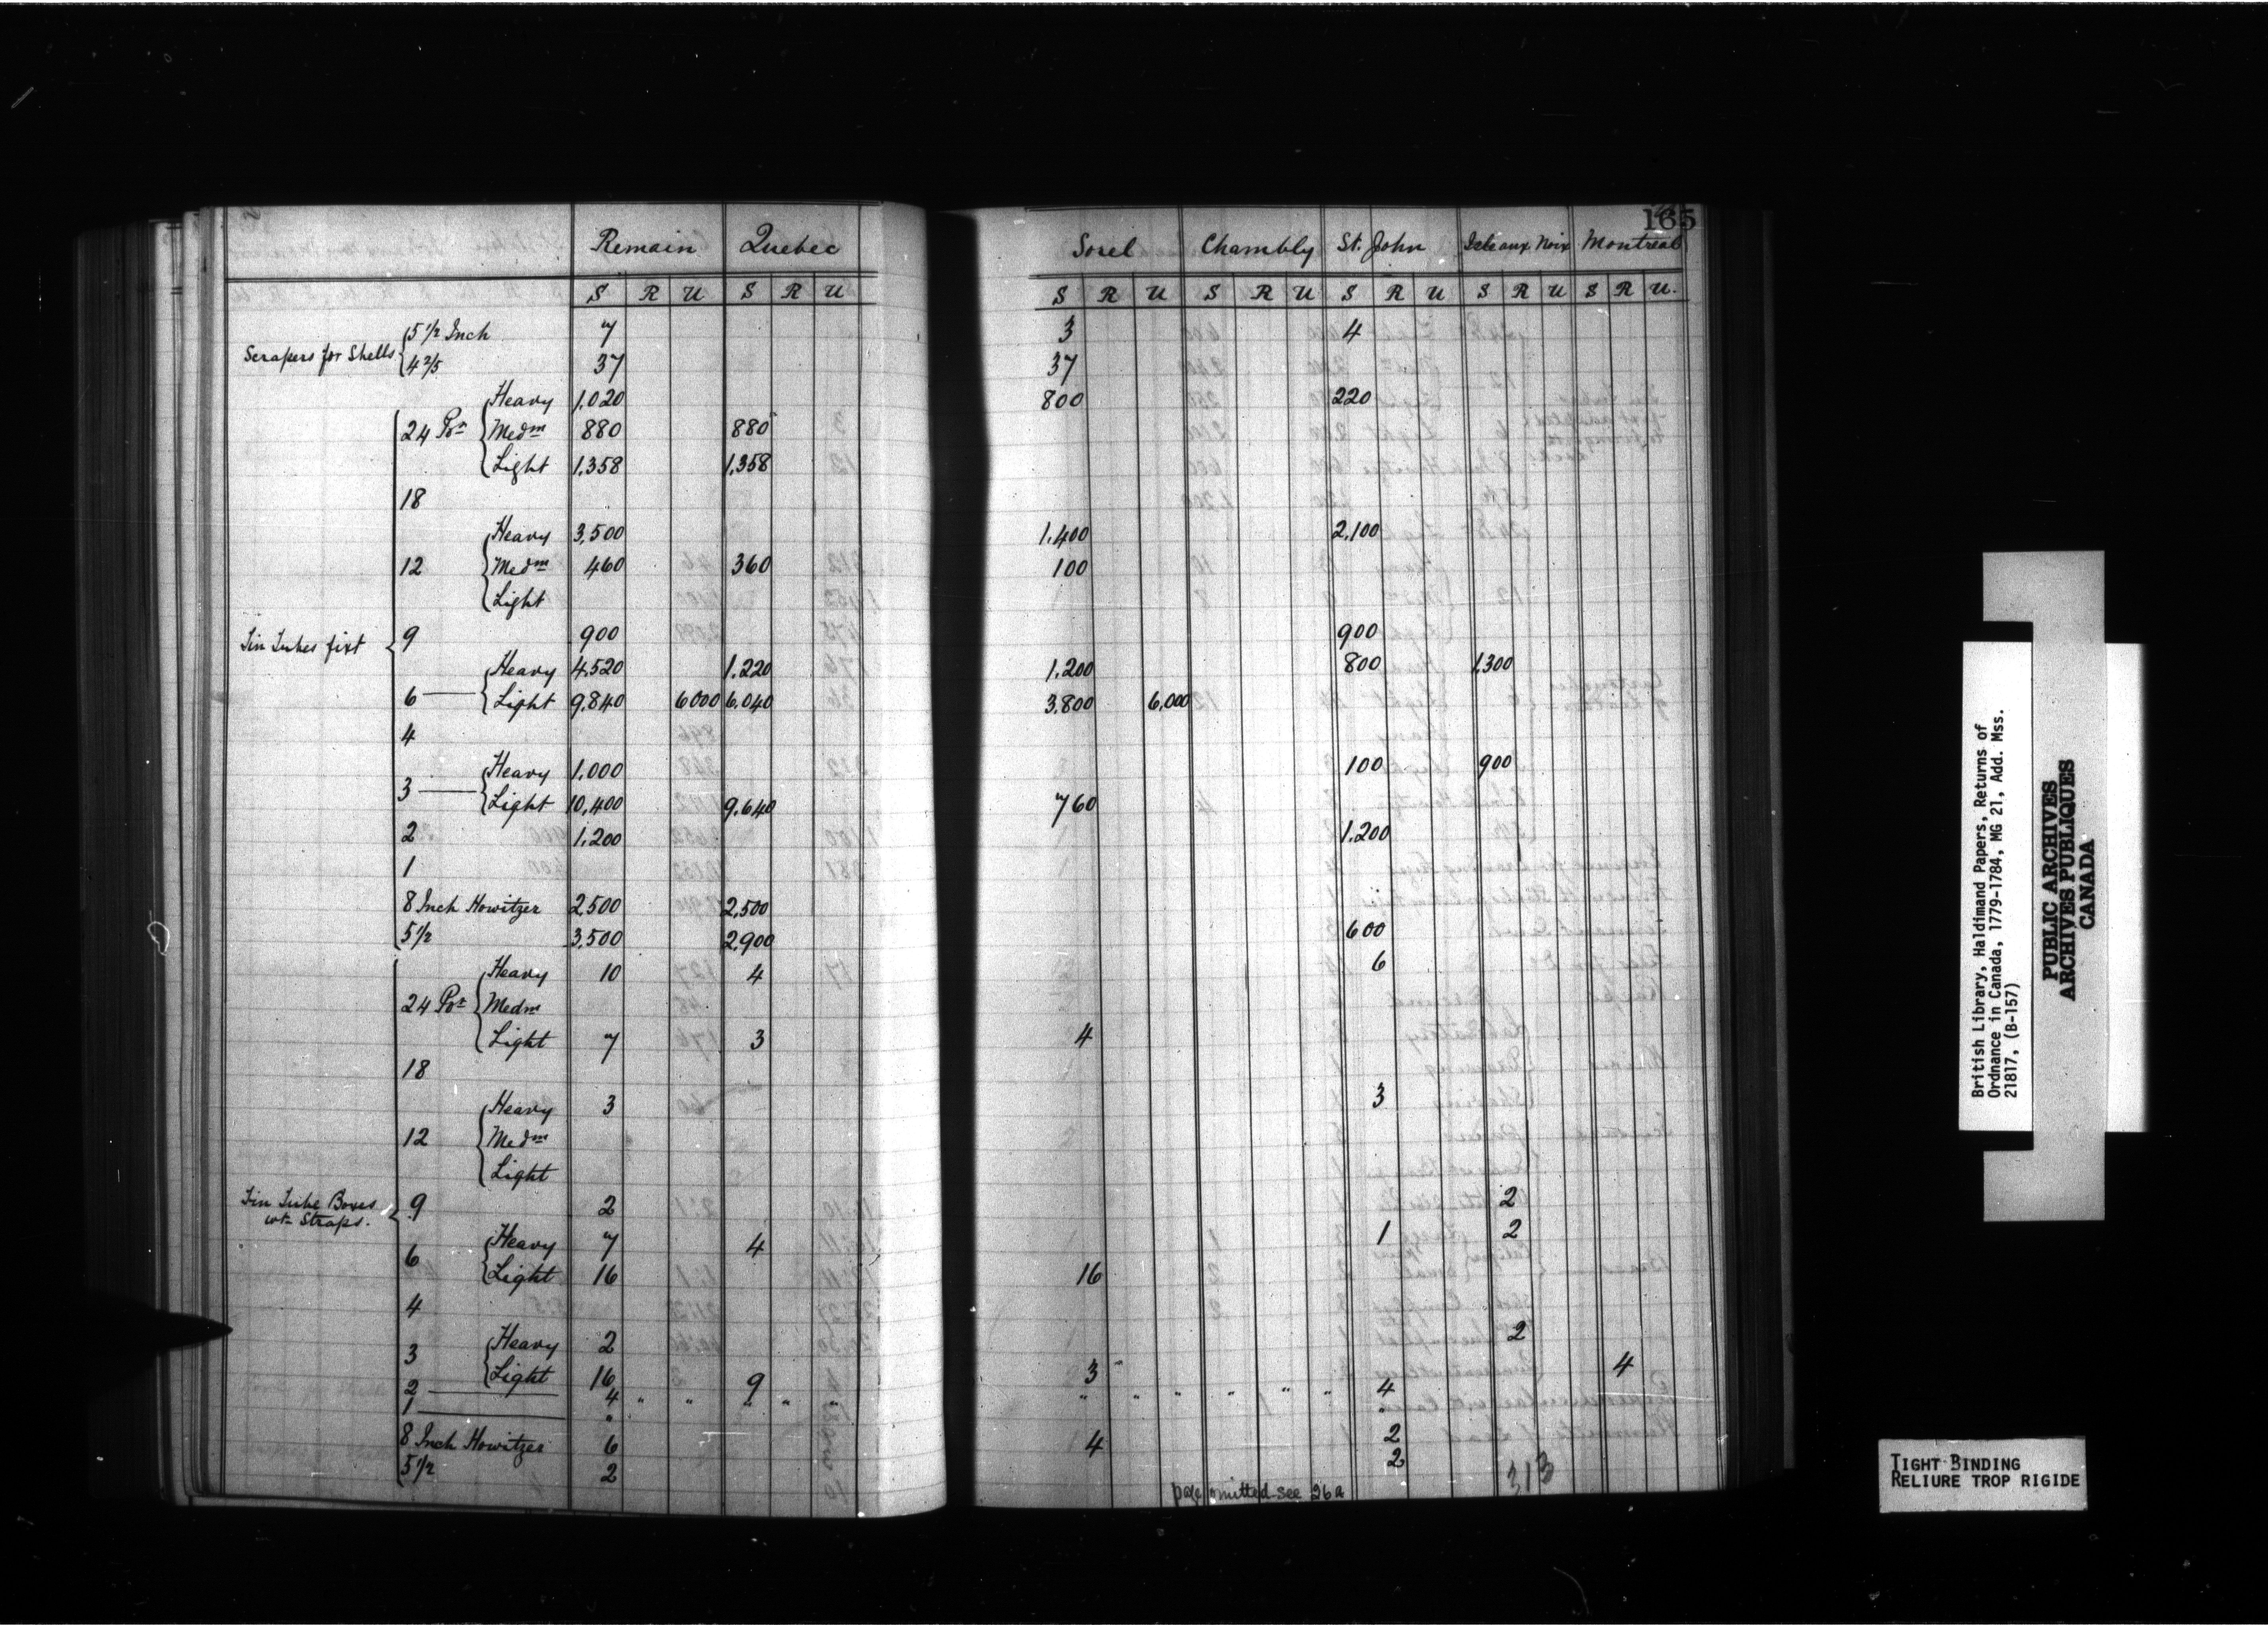 165
Remain Quebec Sorel Chambly St. John Isle aux Noix Montreal
S R U S R U S R U S R U S R U S R U S R U.
Scrapers for Shells { 5 1/2 Inch 7 3 4
4 2/5 37 37
Tin Tubes fixt { 24 Pr { Heavy 1,020 800 220
Medm 880 880
Light 1,358 1,358
18
12 { Heavy 3,500 1,400 2,100
Medm 460 360 100
Light
9 900 900
6 { Heavy 4,520 1.220 1,200 800 1,300
Light 9,840 6000 6,040 3,800 6,000
4
3 { Heavy 1,000 100 900
Light 10,400 9,640 760
2 1,200 1,200
1
8 Inch Howitzer 2,500 2,500
5 1/2 3,500 2,900 600
Tin Tube Boxes wt Straps. { 24 Pr { Heavy 10 4 6
Medm
Light 7 3 4
18
12 { Heavy 3 3
Medm
Light
9 2 2
6 { Heavy 7 4 1 2
Light 16 16
4
3 { Heavy 2 2
Light 16 9 3 4
2 4 " " " " " " " " " " " 4
1 " "
8 Inch Howitzer 6 4 2
5 1/2 2 2
313
page omitted see 26a
British Library, Haldimand Papers, Returns of
Ordnance in Canada, 1779-1784, MG 21, Add. Mss.
21817, (B-157)
PUBLIC ARCHIVES
ARCHIVES PUBLIQUES
CANADA
TIGHT BINDING
RELIURE TROP RIGIDE